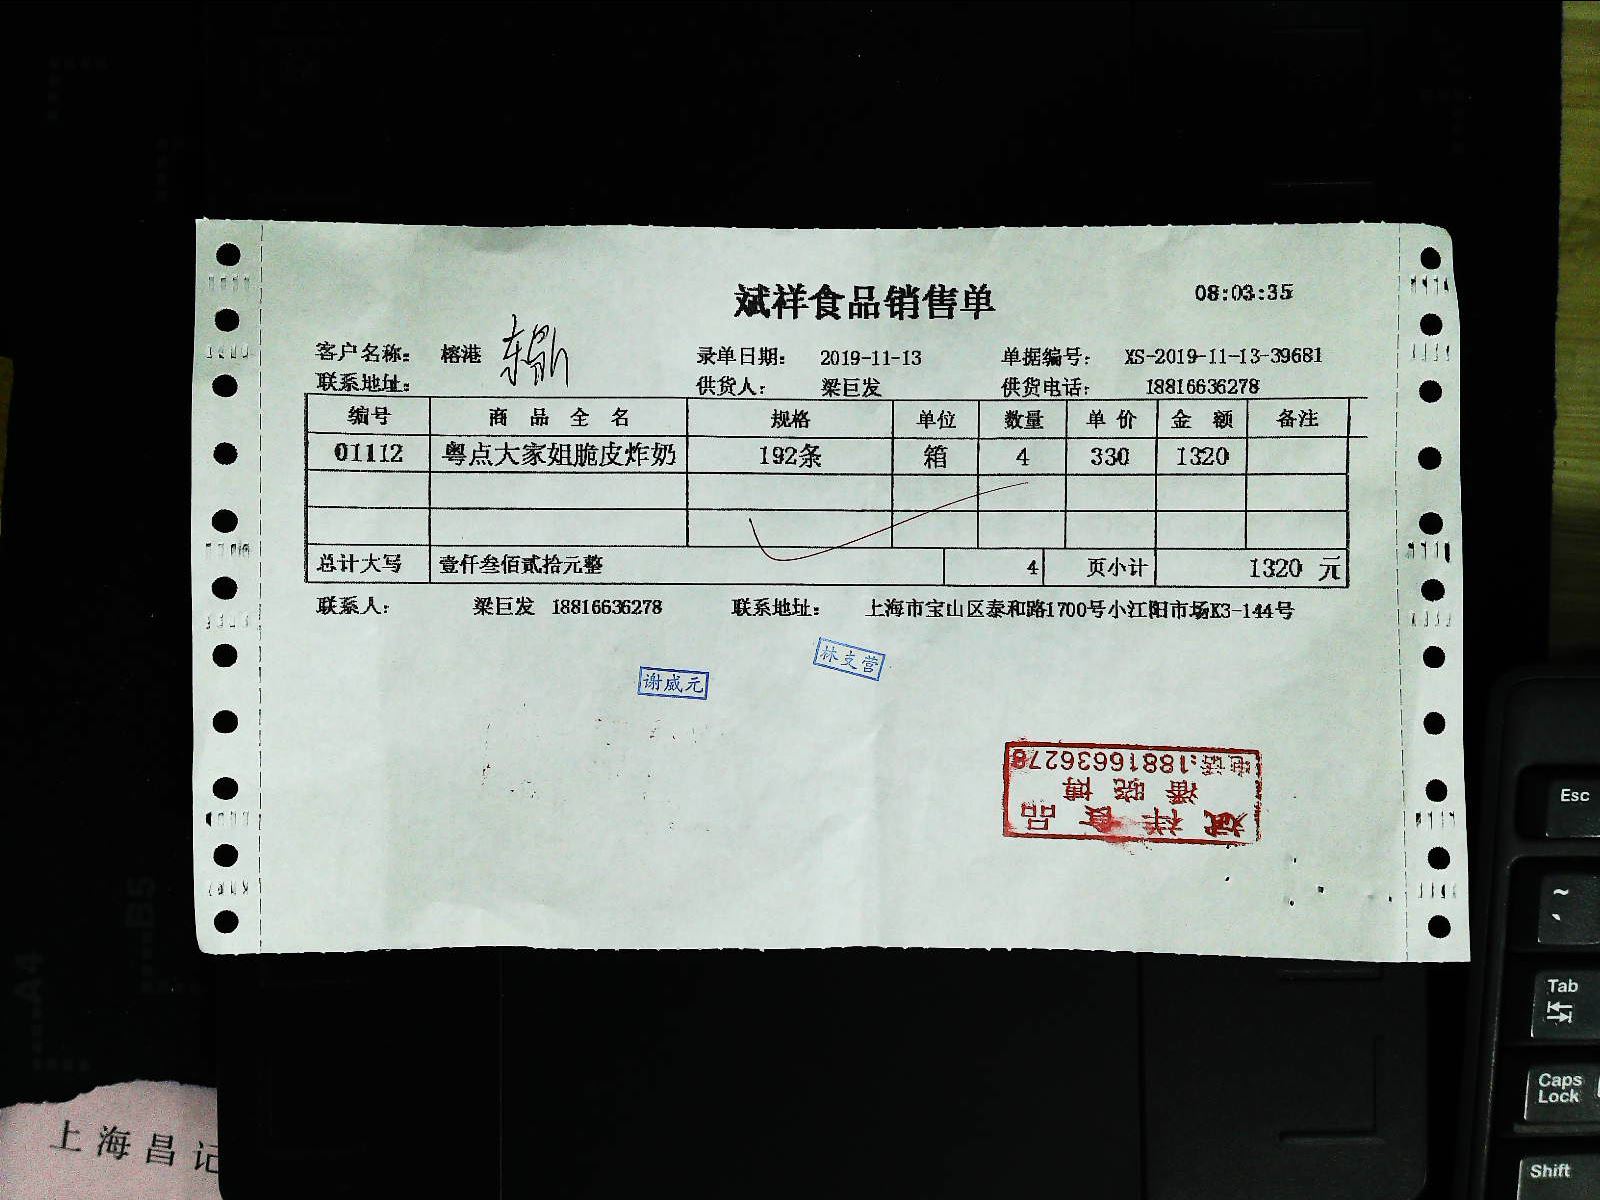 斌祥食品销售单 08:03:35
客户名称: 榕港 录单日期: 2019-11-13 单据编号: XS-2019-11-13-39681
联系地址: 供货人: 梁巨发 供货电话: 18816636278
编号 商品全名 规格 单位 数量 单价 金额 备注
01112 粤点大家姐脆皮炸奶 192条 箱 4 330 1320
总计大写 壹仟叁佰贰拾元整 4 页小计 1320 元
联系人: 梁巨发 18816636278 联系地址: 上海市宝山区泰和路1700号小江阳市场K3-144号
林支营
谢威元
斌祥食品
潘晓博
电话:18816636278
Esc
~
Tab
Caps Lock
Shift
上海昌记
A4
B5